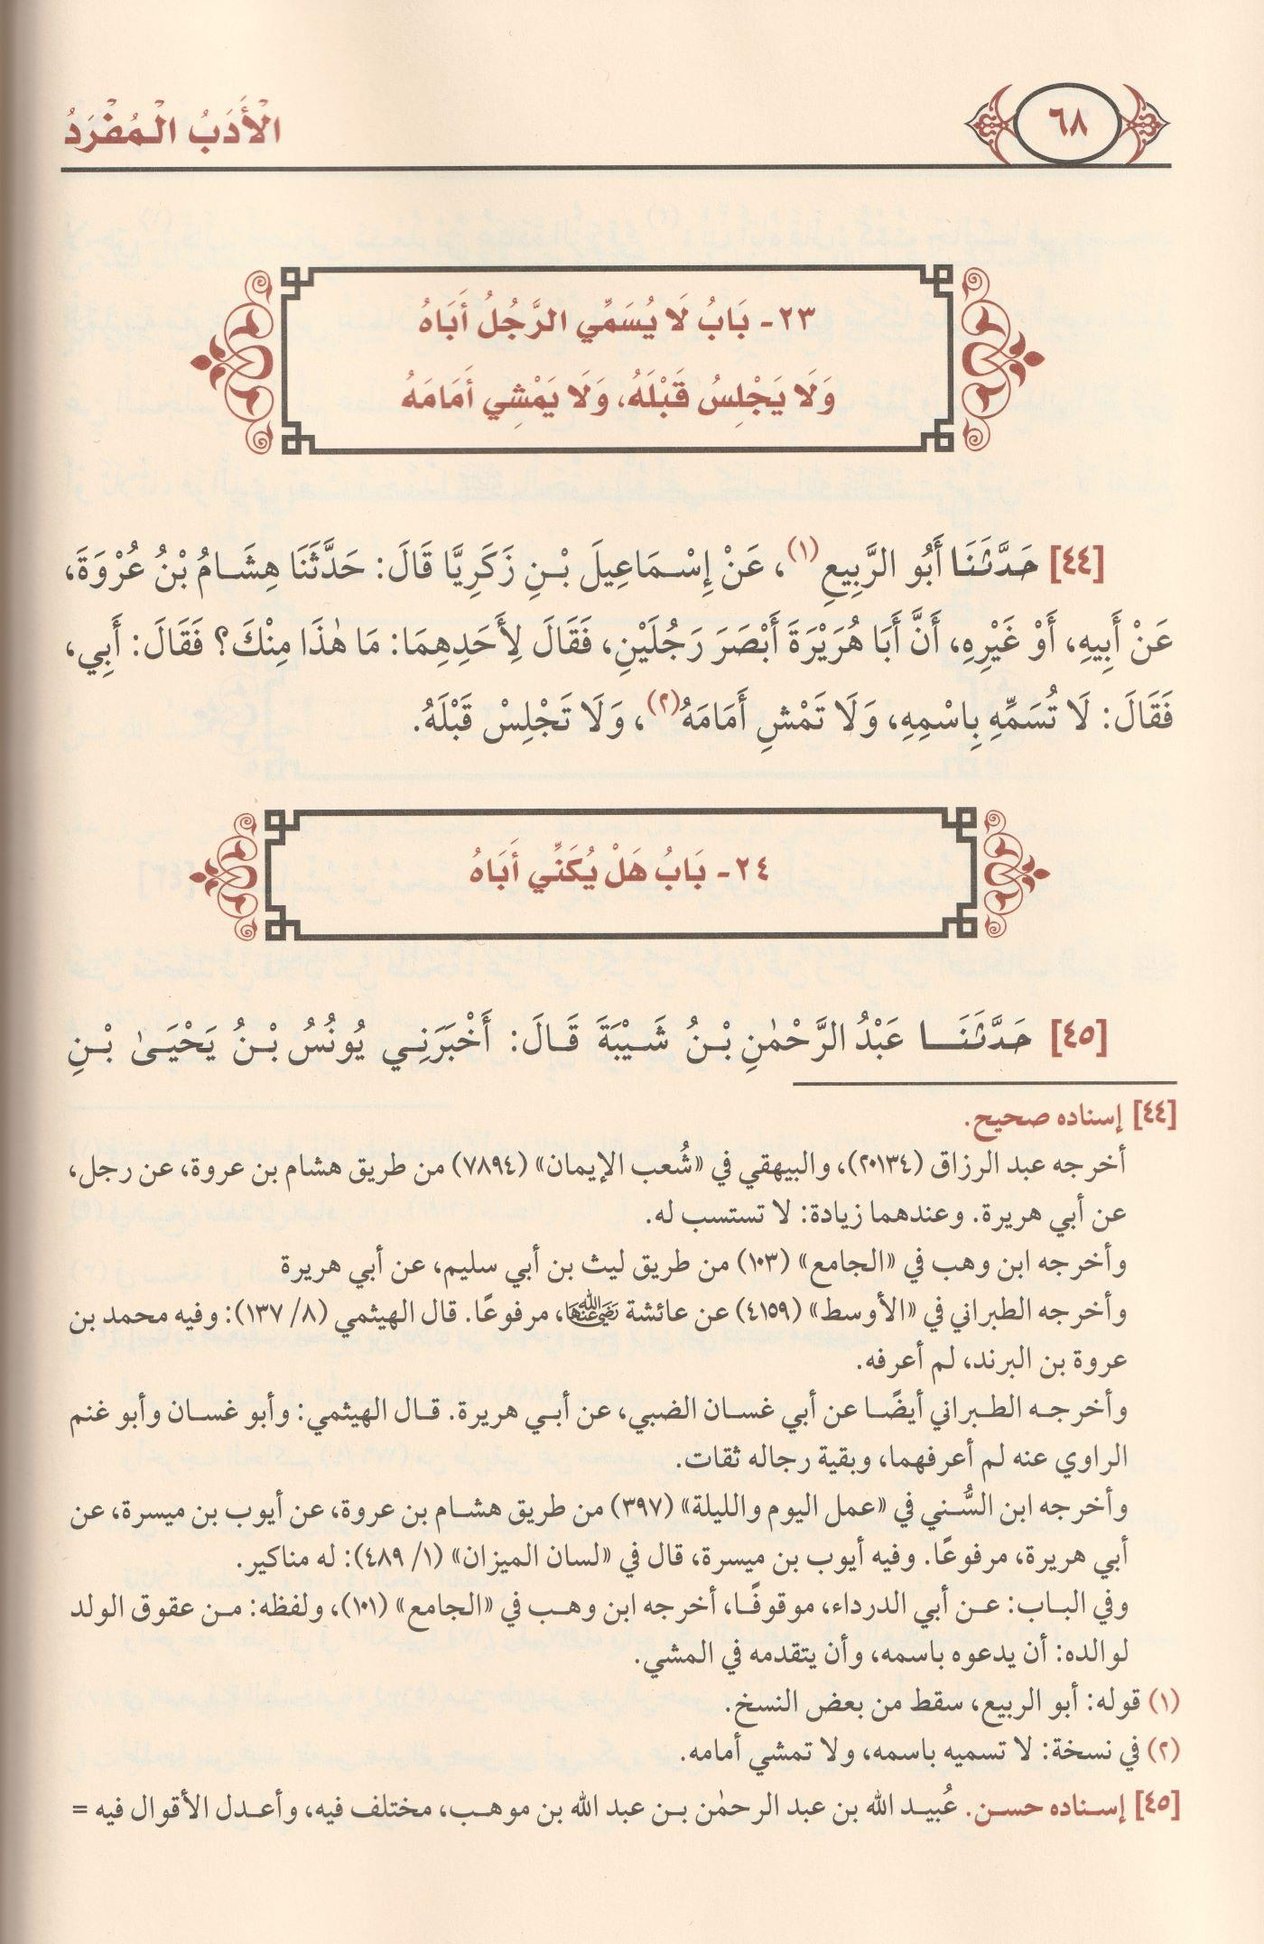 ٦٨
الْأَدَبُ الْمُفْرَدُ
٢٣- بَابُ لَا يُسَمِّي الرَّجُلُ أَبَاهُ
وَلَا يَجْلِسُ قَبْلَهُ، وَلَا يَمْشِي أَمَامَهُ
[٤٤] حَدَّثَنَا أَبُو الرَّبِيعِ(١)، عَنْ إِسْمَاعِيلَ بْنِ زَكَرِيَّا قَالَ: حَدَّثَنَا هِشَامُ بْنُ عُرْوَةَ،
عَنْ أَبِيهِ، أَوْ غَيْرِهِ، أَنَّ أَبَا هُرَيْرَةَ أَبْصَرَ رَجُلَيْنِ، فَقَالَ لِأَحَدِهِمَا: مَا هٰذَا مِنْكَ؟ فَقَالَ: أَبِي،
فَقَالَ: لَا تُسَمِّهِ بِاسْمِهِ، وَلَا تَمْشِ أَمَامَهُ(٢)، وَلَا تَجْلِسْ قَبْلَهُ.
٢٤- بَابُ هَلْ يُكَنِّي أَبَاهُ
[٤٥] حَدَّثَنَا عَبْدُ الرَّحْمٰنِ بْنُ شَيْبَةَ قَالَ: أَخْبَرَنِي يُونُسُ بْنُ يَحْيَىٰ بْنِ
[٤٤] إسناده صحيح.
أخرجه عبد الرزاق (٢٠١٣٤)، والبيهقي في «شُعب الإيمان» (٧٨٩٤) من طريق هشام بن عروة، عن رجل،
عن أبي هريرة. وعندهما زيادة: لا تستسب له.
وأخرجه ابن وهب في «الجامع» (١٠٣) من طريق ليث بن أبي سليم، عن أبي هريرة
وأخرجه الطبراني في «الأوسط» (٤١٥٩) عن عائشة رَضِيَ اللَّهُ عَنْهَا، مرفوعًا. قال الهيثمي (٨/ ١٣٧): وفيه محمد بن
عروة بن البرند، لم أعرفه.
وأخرجه الطبراني أيضًا عن أبي غسان الضبي، عن أبي هريرة. قال الهيثمي: وأبو غسان وأبو غنم
الراوي عنه لم أعرفهما، وبقية رجاله ثقات.
وأخرجه ابن السُّني في «عمل اليوم والليلة» (٣٩٧) من طريق هشام بن عروة، عن أيوب بن ميسرة، عن
أبي هريرة، مرفوعًا. وفيه أيوب بن ميسرة، قال في «لسان الميزان» (١/ ٤٨٩): له مناكير.
وفي الباب: عن أبي الدرداء، موقوفًا، أخرجه ابن وهب في «الجامع» (١٠١)، ولفظه: من عقوق الولد
لوالده: أن يدعوه باسمه، وأن يتقدمه في المشي.
(١) قوله: أبو الربيع، سقط من بعض النسخ.
(٢) في نسخة: لا تسميه باسمه، ولا تمشي أمامه.
[٤٥] إسناده حسن. عُبيد الله بن عبد الرحمٰن بن عبد الله بن موهب، مختلف فيه، وأعدل الأقوال فيه =